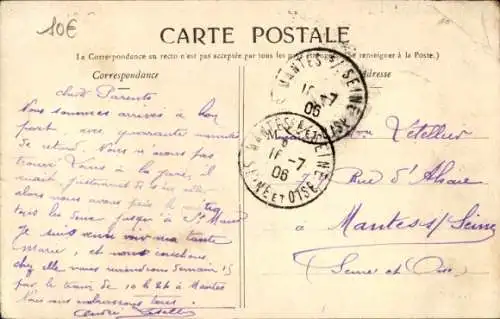 10€
CARTE POSTALE
(La Correspondance au recto n'est pas acceptée par tous les pays étrangers. Se renseigner à la Poste.)
Correspondance
Adresse
chers Parents
Nous sommes arrivés à bon
port, avec quarante minutes
de retard. Nous n'avons pas
trouvé à la gare, il
était justement
alors nous avons pris le métro
tous les deux jusqu'à St Maur
Je suis venu voir ma tante
Marie, et nous couchons
chez elle nous reviendrons demain
par le train de 10 h 26 à Mantes
Nous vous embrassons tous.
André Letellier
MANTES S/ SEINE
16
06
MANTES S/ SEINE
8
16 -7
06
SEINE ET OISE
Létellier
7 Rue d'Alsace
à Mantes s/ Seine
Seine et Oise